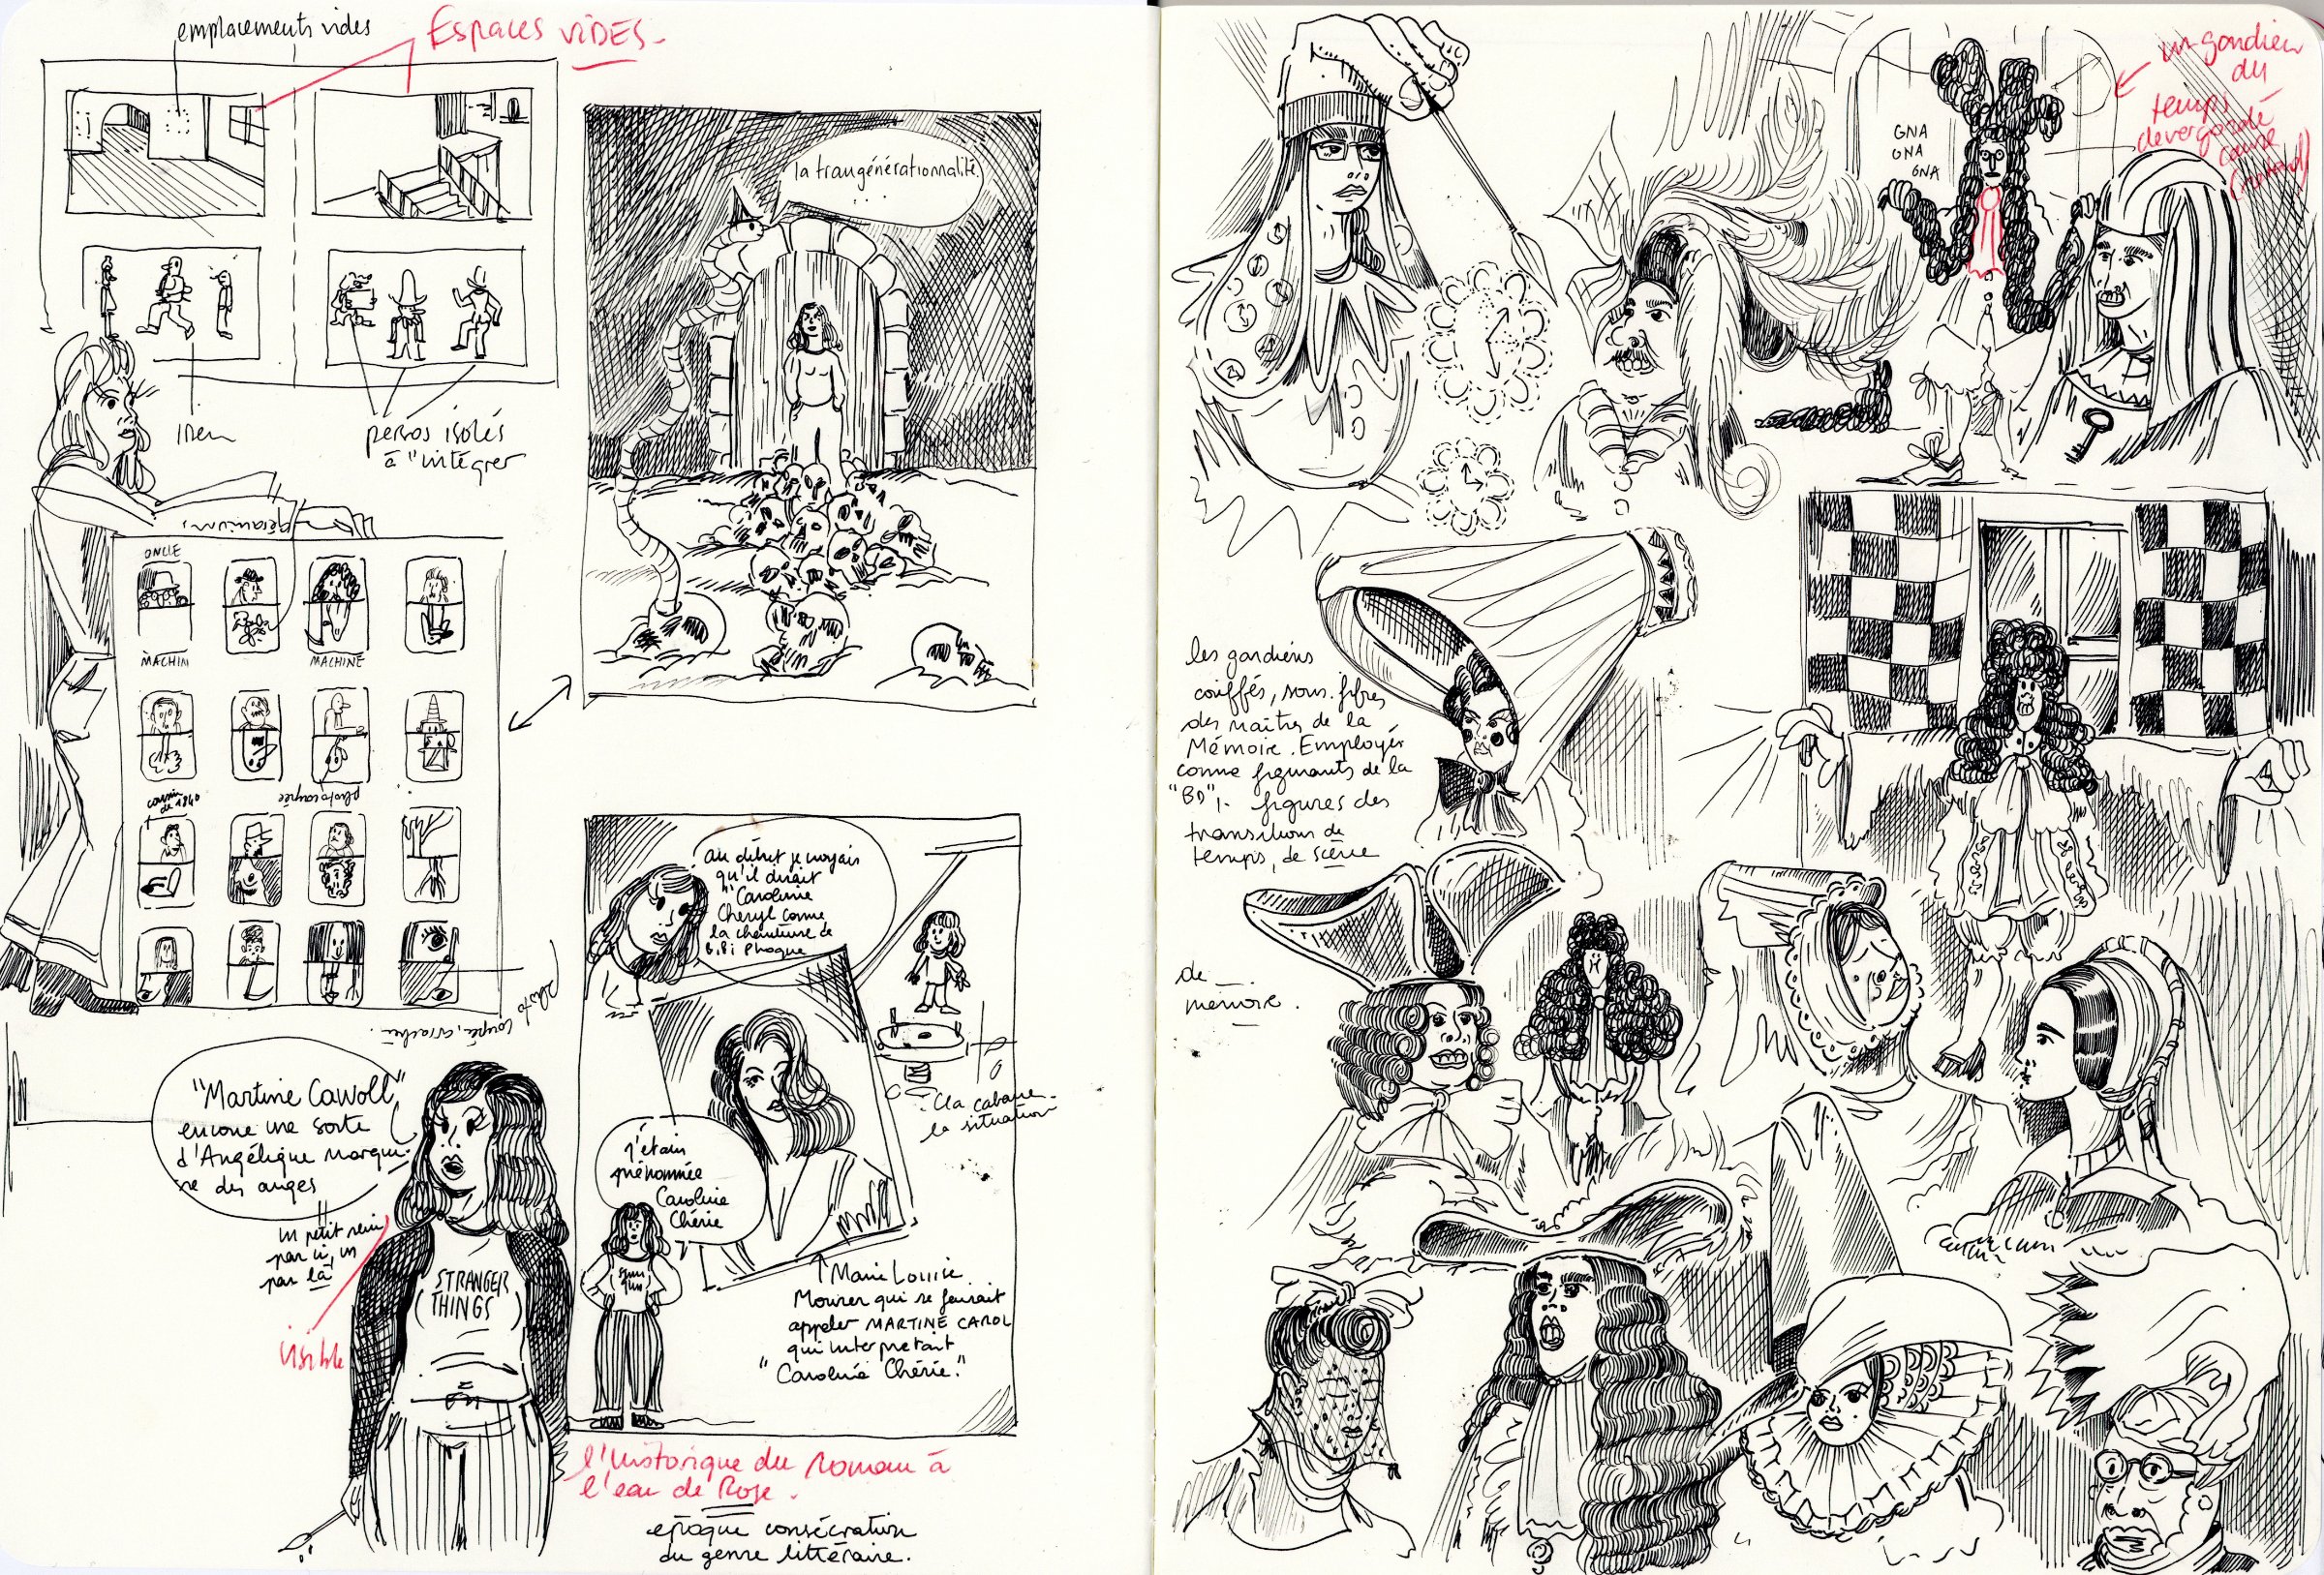 emplacements vides
Espaces VIDES.
Idem
persos isolés
à "intégrer
géranium,
ONCLE
MACHIN
MACHINE
cousin
de 1840
photocopiée
photo
coupée, arrachée.
la transgénérationnalité.
...
au début je croyais
qu'il disait
"Caroline
Cheryl comme
la chanteuse de
Bibi Phoque
j'étais
prénommée
Caroline
Chérie
Cla cabane.
la situation
Marie Louise
Mourer qui se faisait
appeler MARTINE CAROL
qui interprétait
"Caroline Chérie."
"Martine Cawoll"
encore une sorte
d'Angélique marqui-
se des anges
un petit sein
par ci, un
par là
visible
STRANGER
THINGS
l'historique du Roman à
l'eau de Rose.
époque consécration
du genre littéraire.
un gardien
du
temps
dévergondé
course
(retard)
GNA
GNA
GNA
les gardiens
coiffés, sous-fifres
des maîtres de la
Mémoire. Employés
comme figurants de la
"BD",. figures des
transitions de
temps, de scène
de
mémoire.